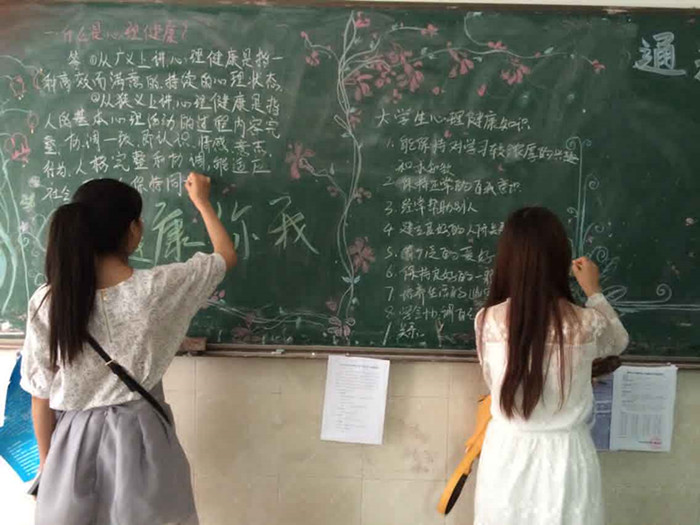 一什么是心理健康?
答 ①从广义上讲心理健康是指一
种高效而满意的、持续的心理状态.
②从狭义上讲心理健康是指
人的基本心理活动的过程内容完
整、协调一致,即认识、情感、意志、
行为、人格完整和协调,能适应
社会 保持同
健康你我
通
大学生心理健康知识
1. 能保持对学习较浓厚的兴趣
和求知欲
2. 保持正常的自我意识
3. 经常帮助别人
4 建立良好的人际关
5. 的爱好
6. 保持良好的
7. 培养生活的
8. 学会协调自己
关系.